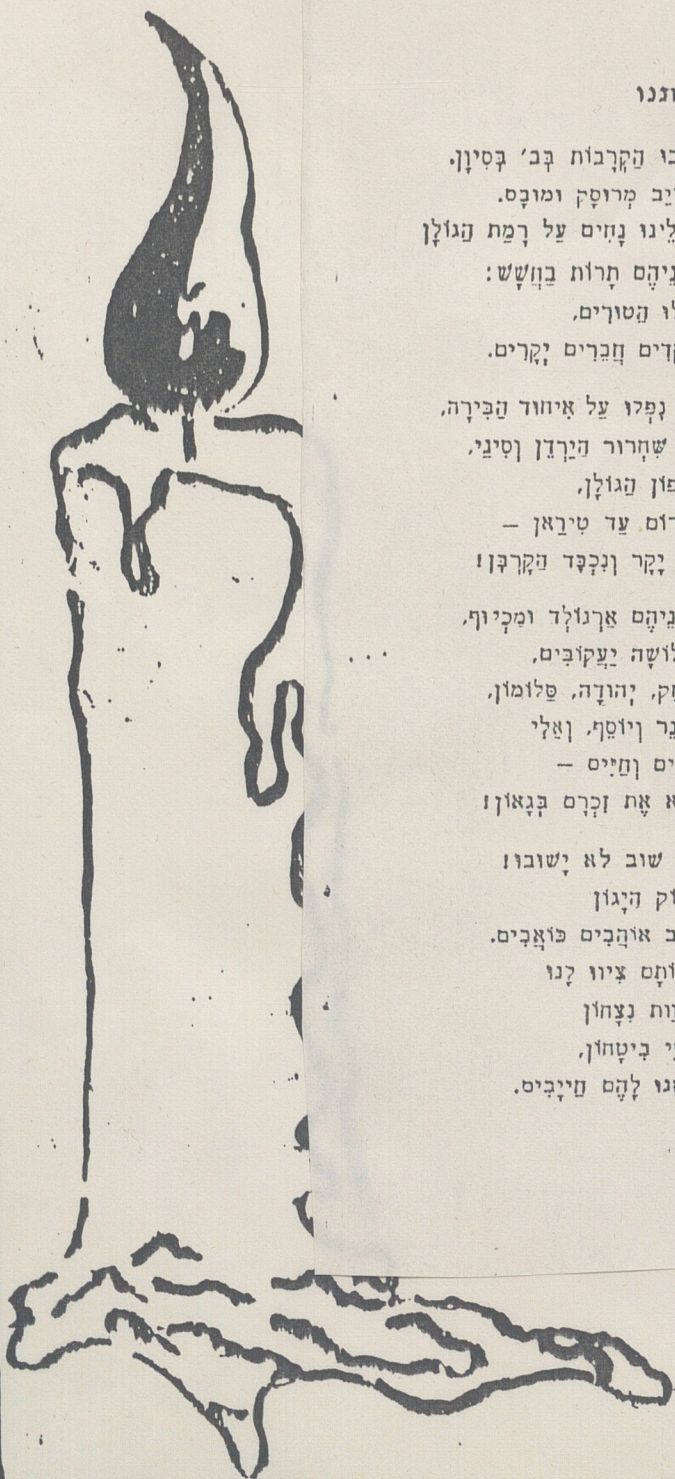 הַקְרָבוֹת בְּב' בְּסִיוָן.
מְרוּסָק ומוּבָס.
נָחִים עַל רָמַת הַגוֹלָן
תָרוֹת בַחֲשָׁשׁ:
הַטוּרִים,
חֲבֵרִים יְקָרִים.
נָפְלוּ עַל אִיחוּד הַבִּירָה,
שִׁחְרוּר הַיַרְדֵן וְסִינַי,
הַגוֹלָן,
עַד טִירַאן –
יָקָר וְנִכְבָּד הַקָרְבָּן!
אַרְנוֹלְד וּמַכְּיוּף,
יַעֲקוֹבִּים,
יְהוּדָה, סַלוֹמוֹן,
וְיוֹסֵף, וְאֵלִי
וְחַיִּים –
אֶת זִכְרָם בְּגָאוֹן!
שׁוּב לֹא יָשׁוּבוּ!
הַיָגוֹן
אוֹהֲבִים כּוֹאֲבִים.
צִיווּ לָנוּ
נִצָחוֹן
בִּיטָחוֹן,
לָהֶם חַיָיבִים.